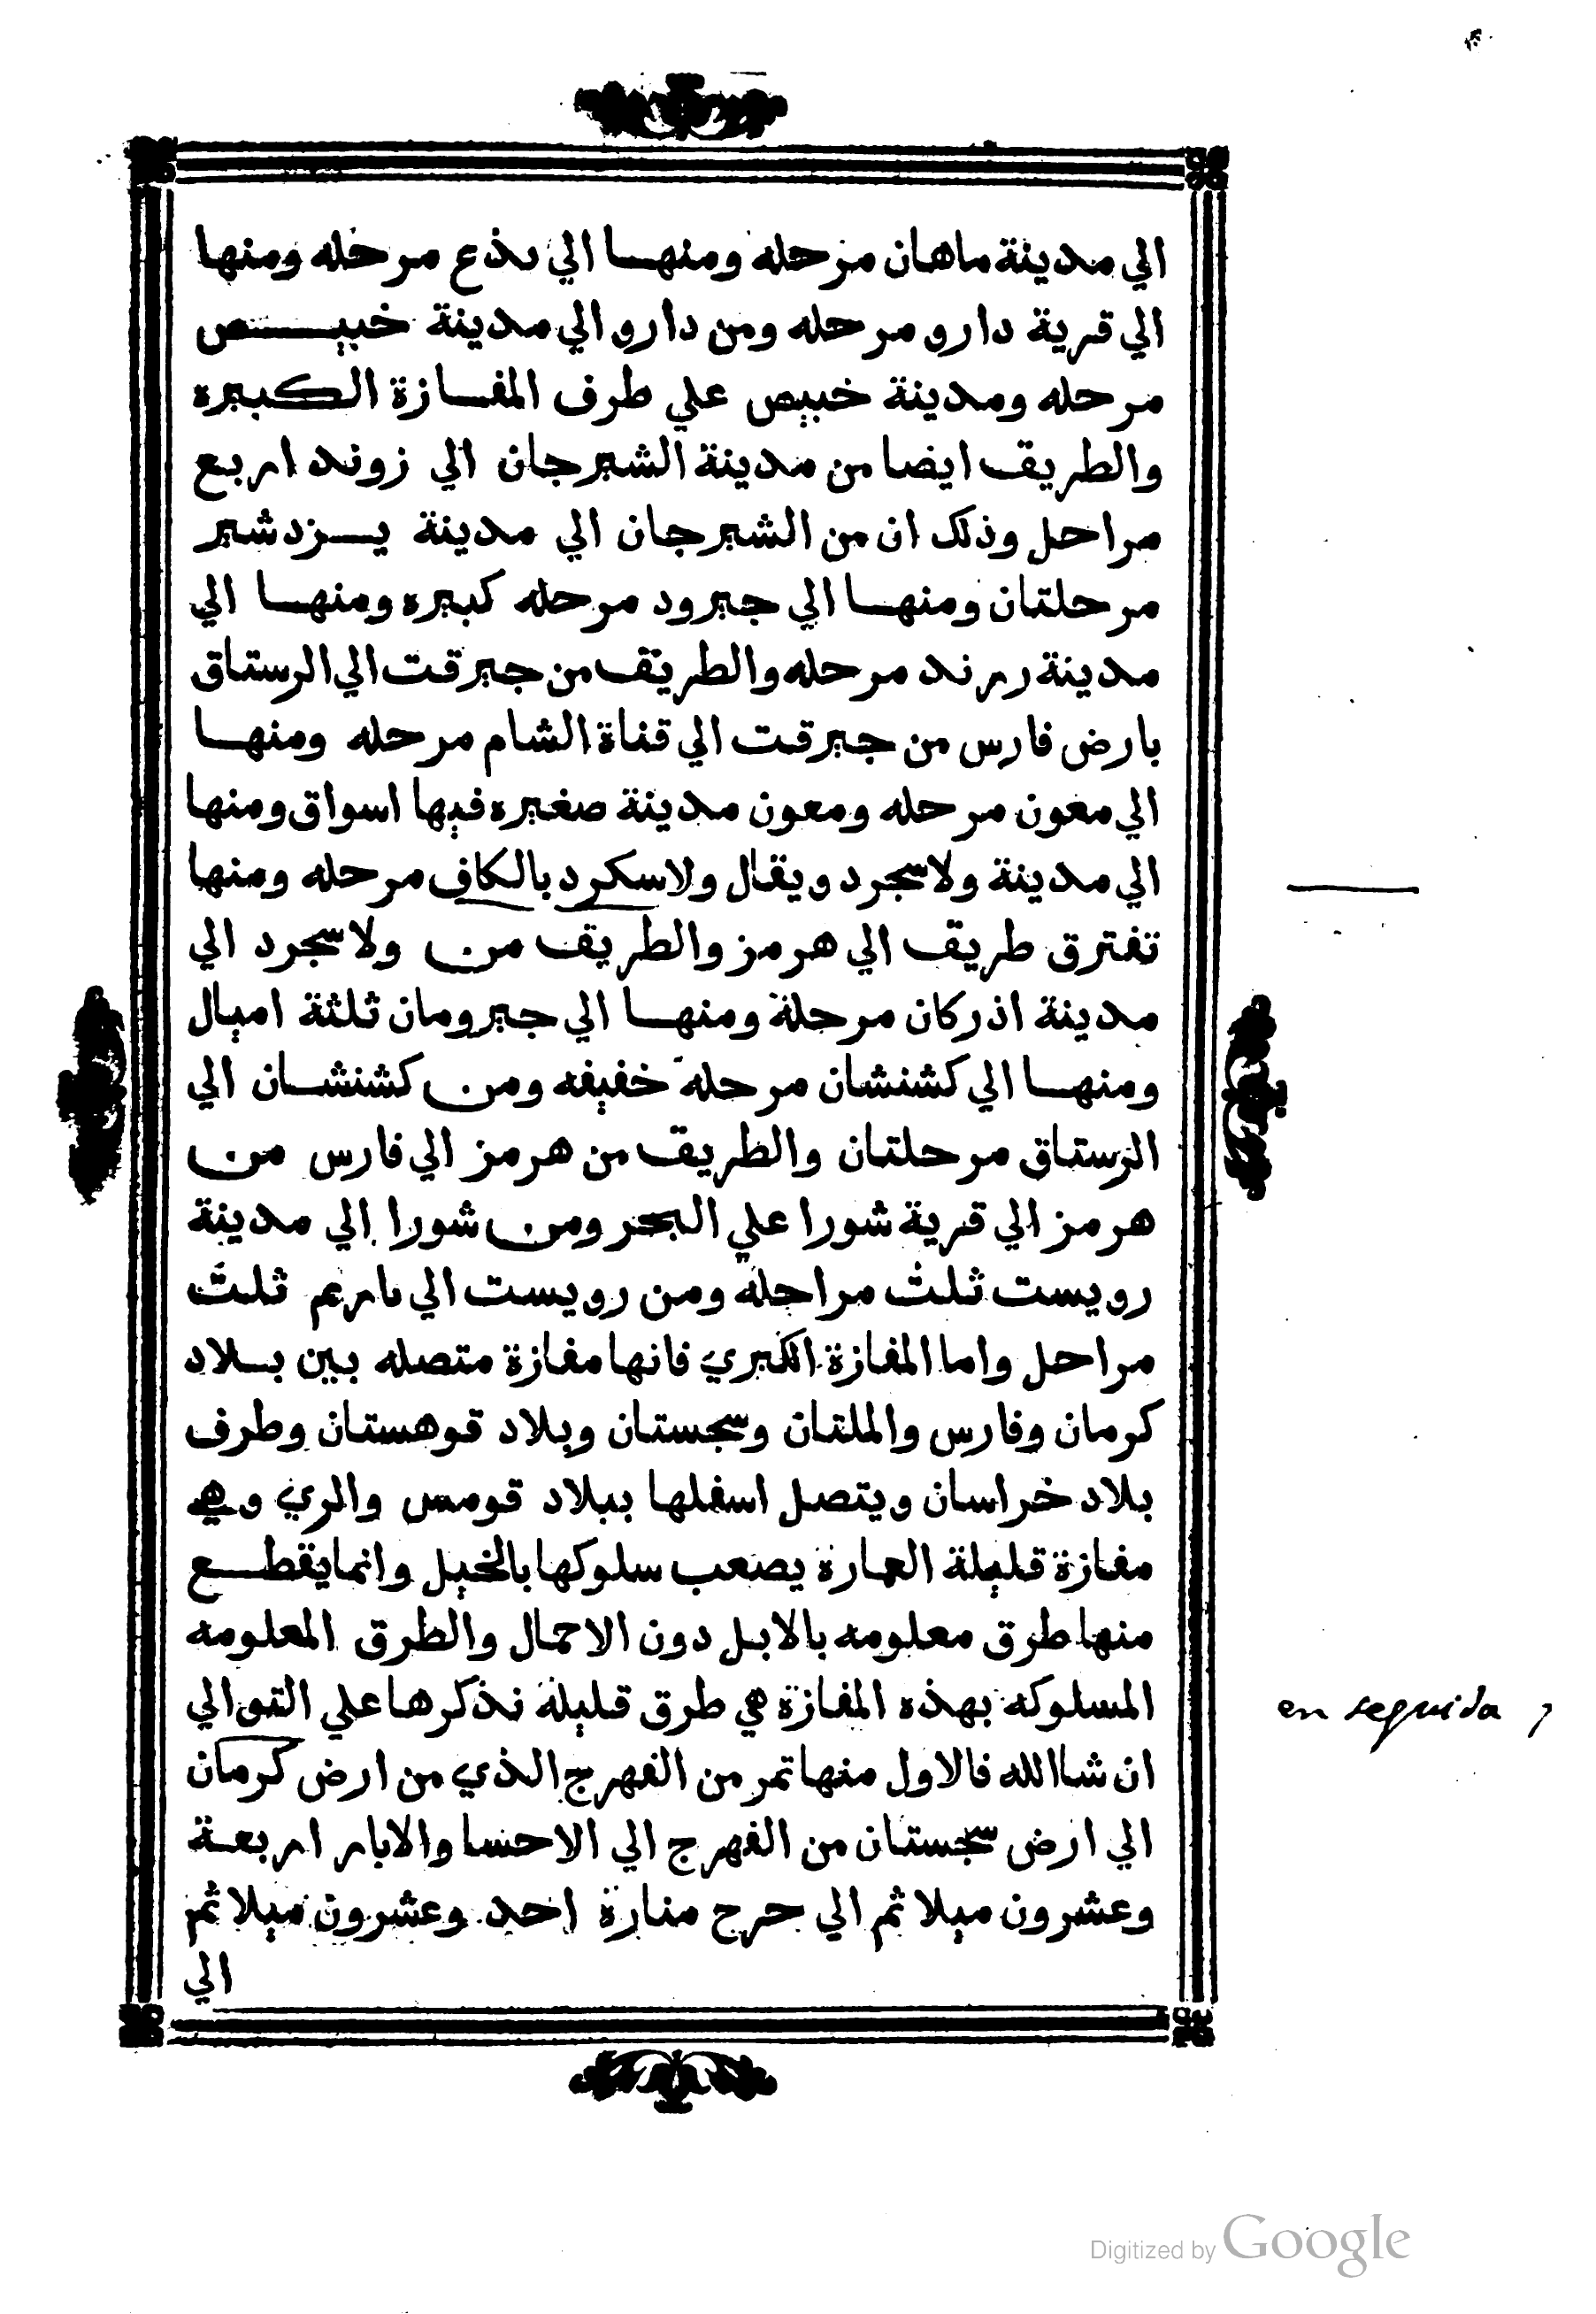 الي مدينة ماهان مرحله ومنها الي ىذع مرحله ومنها
الي قرية دارو مرحله ومن دارو الي مدينة خبيص
مرحله ومدينة خبيص علي طرف المفازة الكبيره
والطريق ايضا من مدينة الشيرجان الي زوند اربع
مراحل وذلك ان من الشيرجان الي مدينة يزدشير
مرحلتان ومنها الي جيرود مرحله كبيره ومنها الي
مدينة زرند مرحله والطريق من جيرقت الي الرستاق
بارض فارس من جيرقت الي قناة الشام مرحله ومنها
الي معون مرحله ومعون مدينة صغيره فيها اسواق ومنها
الي مدينة ولاسجرد ويقال ولاسكرد بالكاف مرحله ومنها
تفترق طريق الي هرمز والطريق من ولاسجرد الي
مدينة اذركان مرحلة ومنها الي جيرومان ثلثة اميال
ومنها الي كشنشان مرحلة خفيفه ومن كشنشان الي
الرستاق مرحلتان والطريق من هرمز الي فارس من
هرمز الي قرية شورا علي البحر ومن شورا الي مدينة
رويست ثلث مراحله ومن رويست الي تارم ثلث
مراحل واما المفازة الكبري فانها مفازة متصله بين بلاد
كرمان وفارس والملتان وسجستان وبلاد قوهستان وطرف
بلاد خراسان ويتصل اسفلها ببلاد قومس والري وهي
مفازة قليلة العماره يصعب سلوكها بالخيل وانما يقطع
منها طرق معلومه بالابل دون الاحمال والطرق المعلومه
المسلوكه بهذه المفازة هي طرق قليلة نذكرها علي التوالي
en seguida
ان شاالله فالاول منها تمر من الفهرج الذي من ارض كرمان
الي ارض سجستان من الفهرج الي الاحسا والابار اربعة
وعشرون ميلا ثم الي حرج منارة احد وعشرون ميلا ثم
الي
Digitized by Google